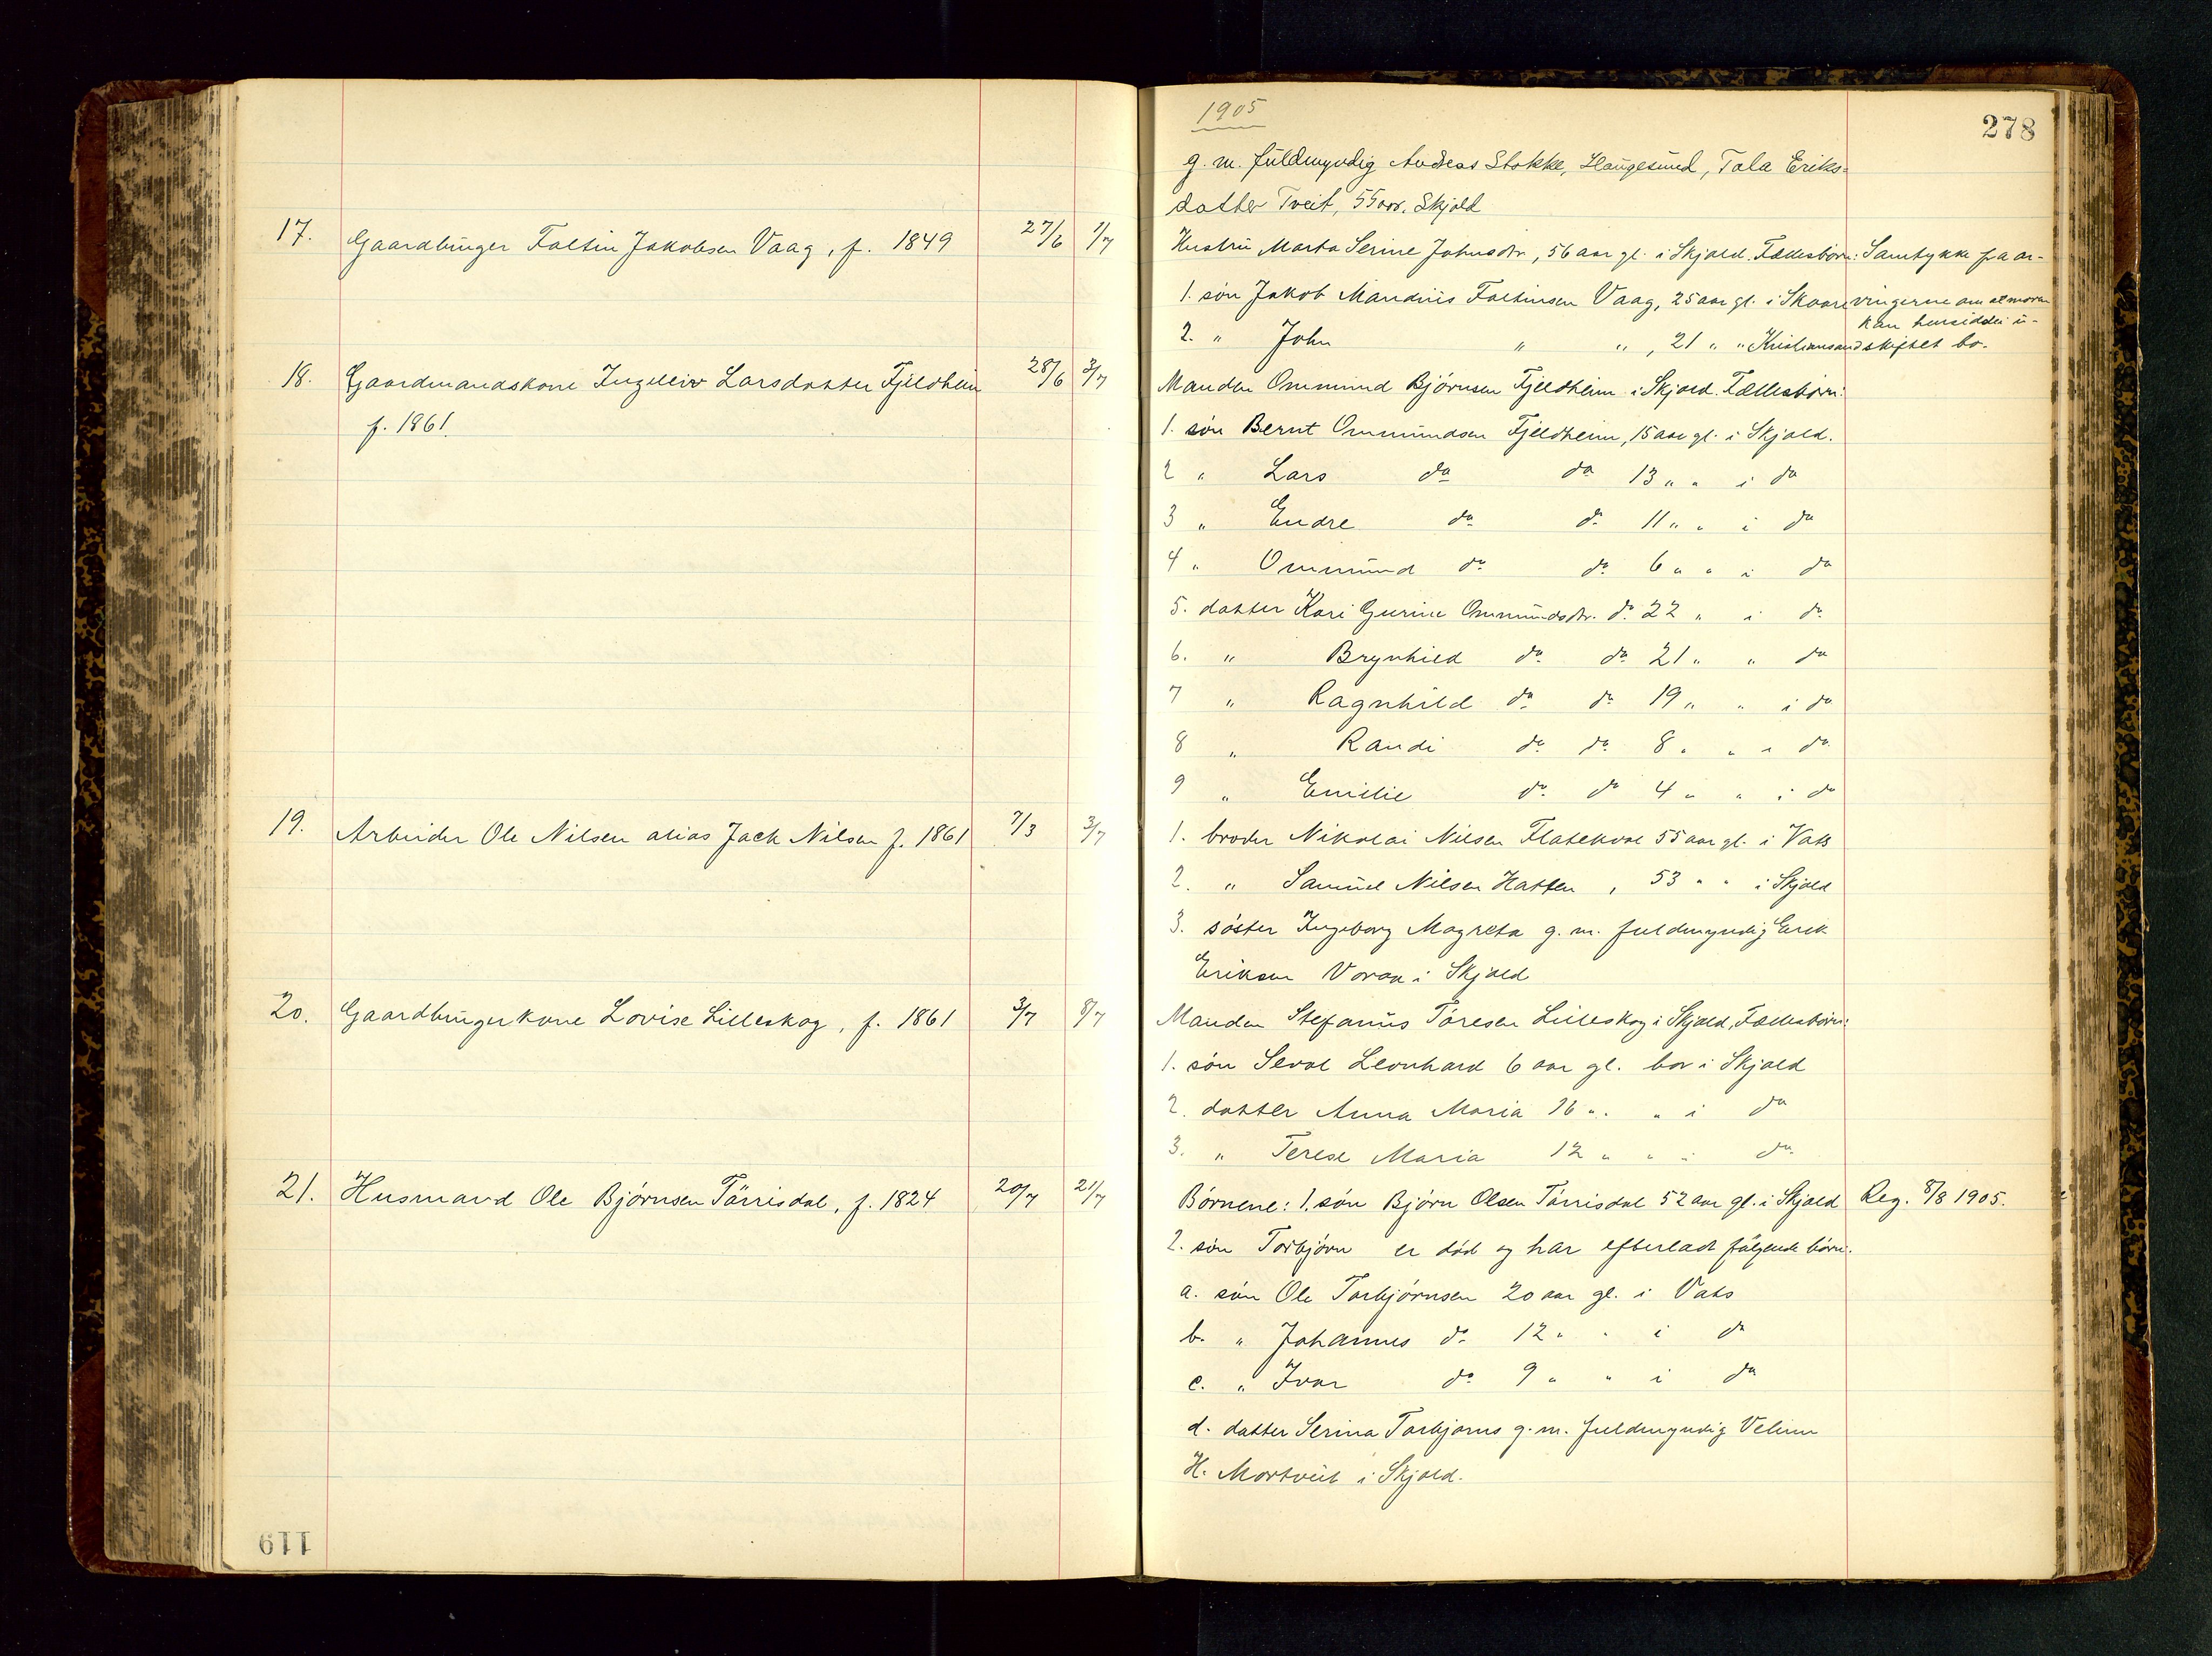 1905
278
g. m. fuldmyndig Andreas Stokke, Haugesund, Tala Eriks-
datter Tveit, 55 aar. Skjold
17. Gaardbruger Foltin Jakobsen Vaag, f. 1849 27/6 1/7
Hustru Marta Serine Johnsdtr, 56 aar gl. i Skjold. Fællesbørn:
1. søn Jakob Mandius Foltinsen Vaag, 25 aar gl. i Skaare
2. " John " " , 21 " " Kristiansand
Samtykke fra ar-
vingerne om at moren
kan hensidde i u-
skiftet bo.
18. Gaardmandskone Ingeleiv Larsdatter Fjeldheim 28/6 3/7
f. 1861.
Manden Ommund Bjørnsen Fjeldheim i Skjold. Fællesbørn:
1. søn Bernt Ommundsen Fjeldheim, 15 aar gl. i Skjold.
2 " Lars do do 13 " " i do
3 " Endre do do 11 " " i do
4 " Ommund do do 6 " " i do
5. datter Kari Gurine Ommundsdtr. do 22 " i do
6. " Brynhild do do 21 " " do
7 " Ragnhild do do 19 " " i do
8 " Randi do do 8 " " i do
9 " Emilie do do 4 " " i do
19. Arbeider Ole Nilsen alias Jack Nilsen f. 1861 7/3 3/7
1. broder Nikolai Nilsen 55 aar gl. i Vats
2. " Samuel Nilsen Hatten, 53 " " i Skjold
3. søster Ingeborg Magreta g. m. fuldmyndig Erik
Eriksen i Skjold
20. Gaardbrugerkone Lovise Lilleskog, f. 1861 3/7 8/7
Manden Stefanus Tøresen Lilleskog i Skjold, Fællesbørn:
1. søn Leonhard 6 aar gl. bor i Skjold
2. datter Anna Maria 16 " " i do
3. " Terese Maria 12 " " " do
21. Husmand Ole Bjørnsen Tørrisdal, f. 1824 20/7 21/7
Børnene: 1. søn Bjørn Olsen Tørrisdal 52 aar gl. i Skjold
Reg. 8/8 1905.
2. søn Torbjørn er død og har efterladt følgende børn:
a. søn Ole Torbjørnsen 20 aar gl. i Vats
b. " Johannes do 12 " " i do
c. " Ivar do 9 " " i do
d. datter Serina Torbjørns g. m. fuldmyndig
H. Mortveit i Skjold.
119